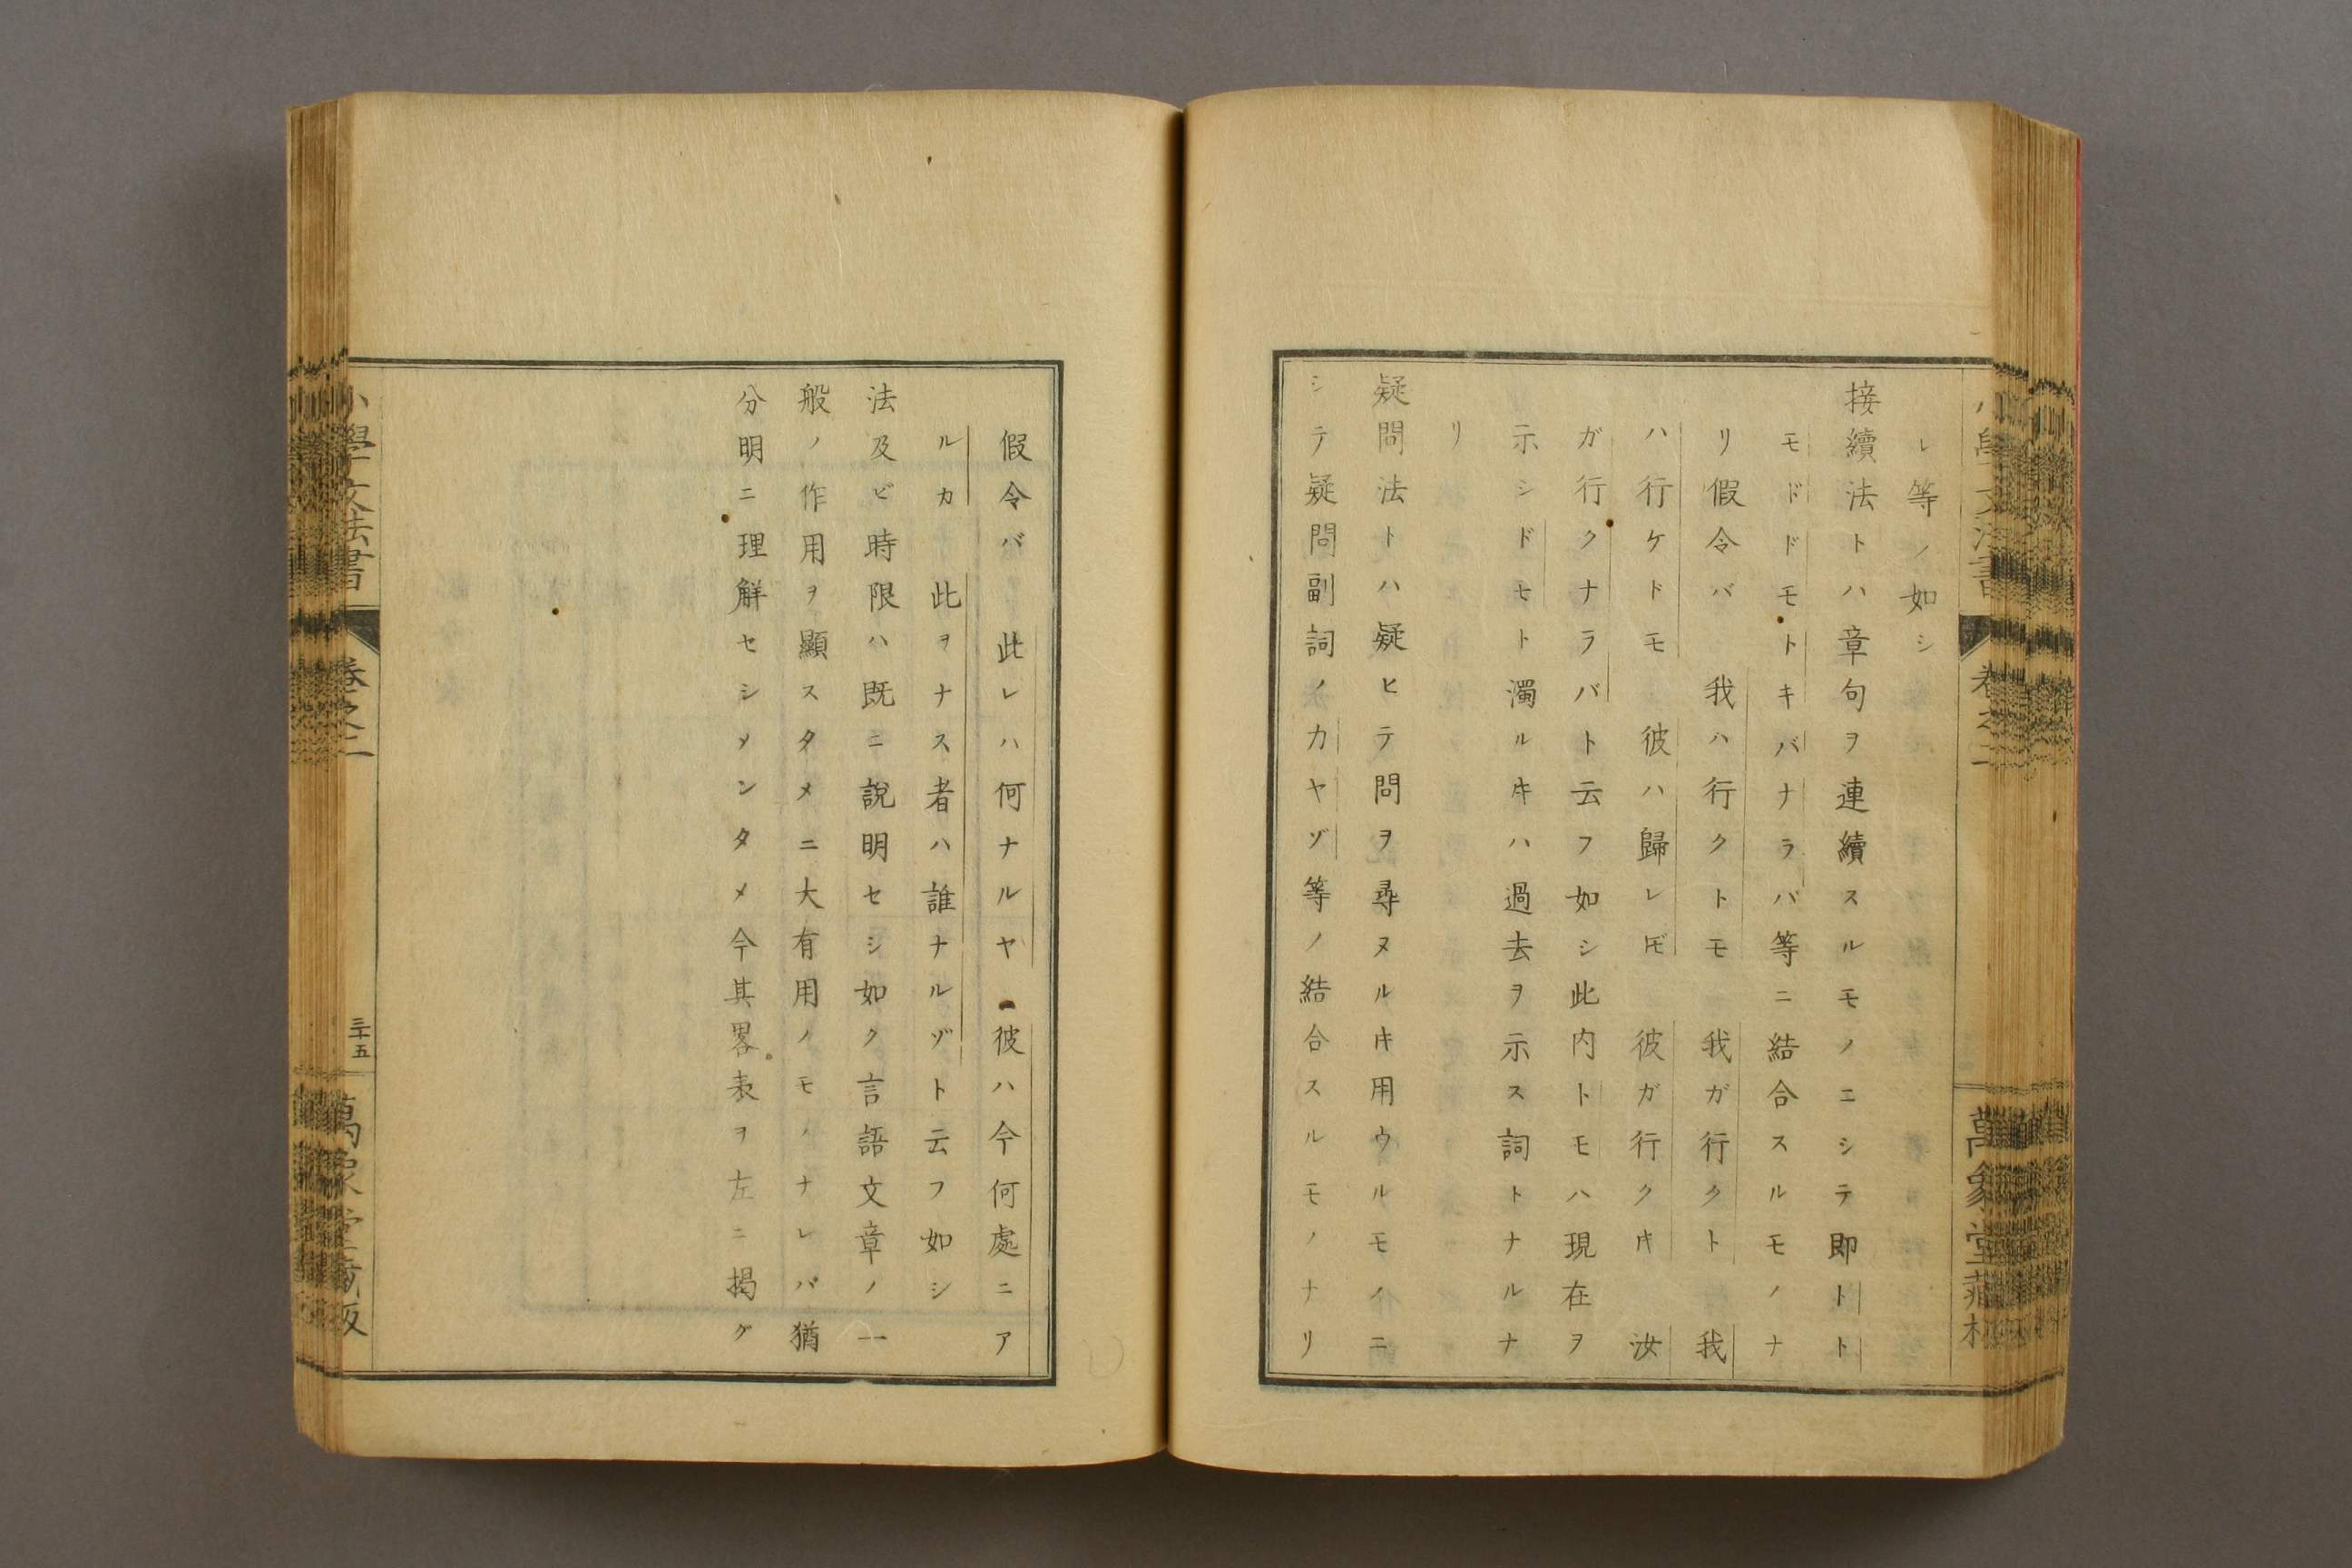 レ等ノ如シ
接續法トハ章句ヲ連續スルモノニシテ即トト
モドドモトキバナラバ等ニ結合スルモノナ
リ假令バ 我ハ行クトモ 我ガ行クト 我
ハ行ケドモ 彼ハ歸レ𪜈 彼ガ行クキ 汝
ガ行クナラバト云フ如シ此内トモハ現在ヲ
示シドモト濁ルキハ過去ヲ示ス詞トナルナ
リ
疑問法トハ疑ヒテ問ヲ尋ヌルキ用ウルモノニ
シテ疑問副詞ノカヤゾ等ノ結合スルモノナリ
假令バ 此レハ何ナルヤ 彼ハ今何處ニア
ルカ 此ヲナス者ハ誰ナルゾト云フ如シ
法及ビ時限ハ既ニ說明セシ如ク言語文章ノ一
般ノ作用ヲ顯スタメニ大有用ノモノナレバ猶
分明ニ理解セシメンタメ今其畧表ヲ左ニ揭グ
小學文法書
卷之二
三十五
萬象堂藏版